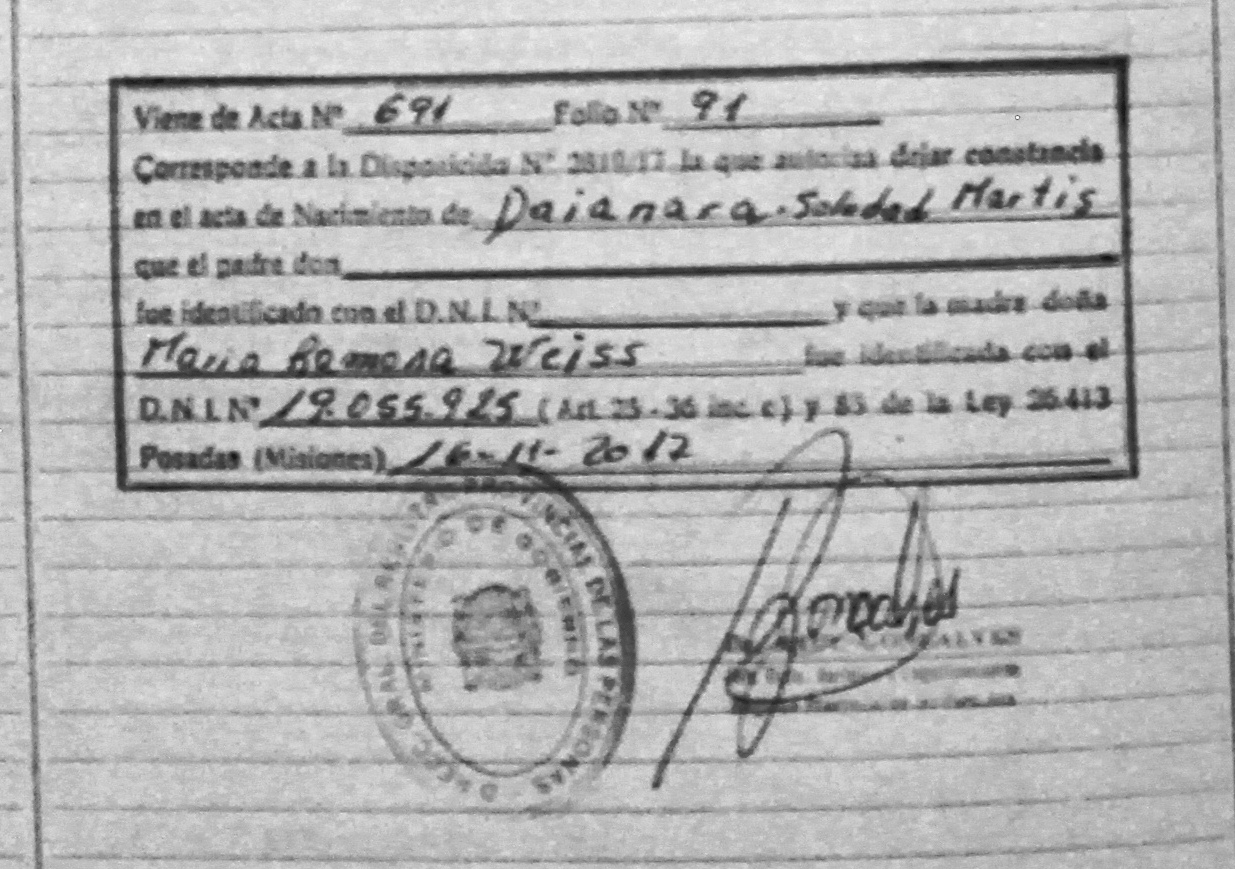 Viene de Acta Nº 691 Folio Nº 91
Corresponde a la Disposición Nº 2810/17 la que autoriza dejar constancia
en el acta de Nacimiento de Daianara Soledad Martis
que el padre don
fue identificado con el D.N.I. Nº y que la madre doña
Maria Ramona Weiss fue identificada con el
D.N.I. Nº 19.055.925 (Art. 25 - 36 inc c) y 85 de la Ley 26.413
Posadas (Misiones) 16-11-2017
PROVINCIAL DE LAS PERSONAS
MINISTERIO DE GOBIERNO